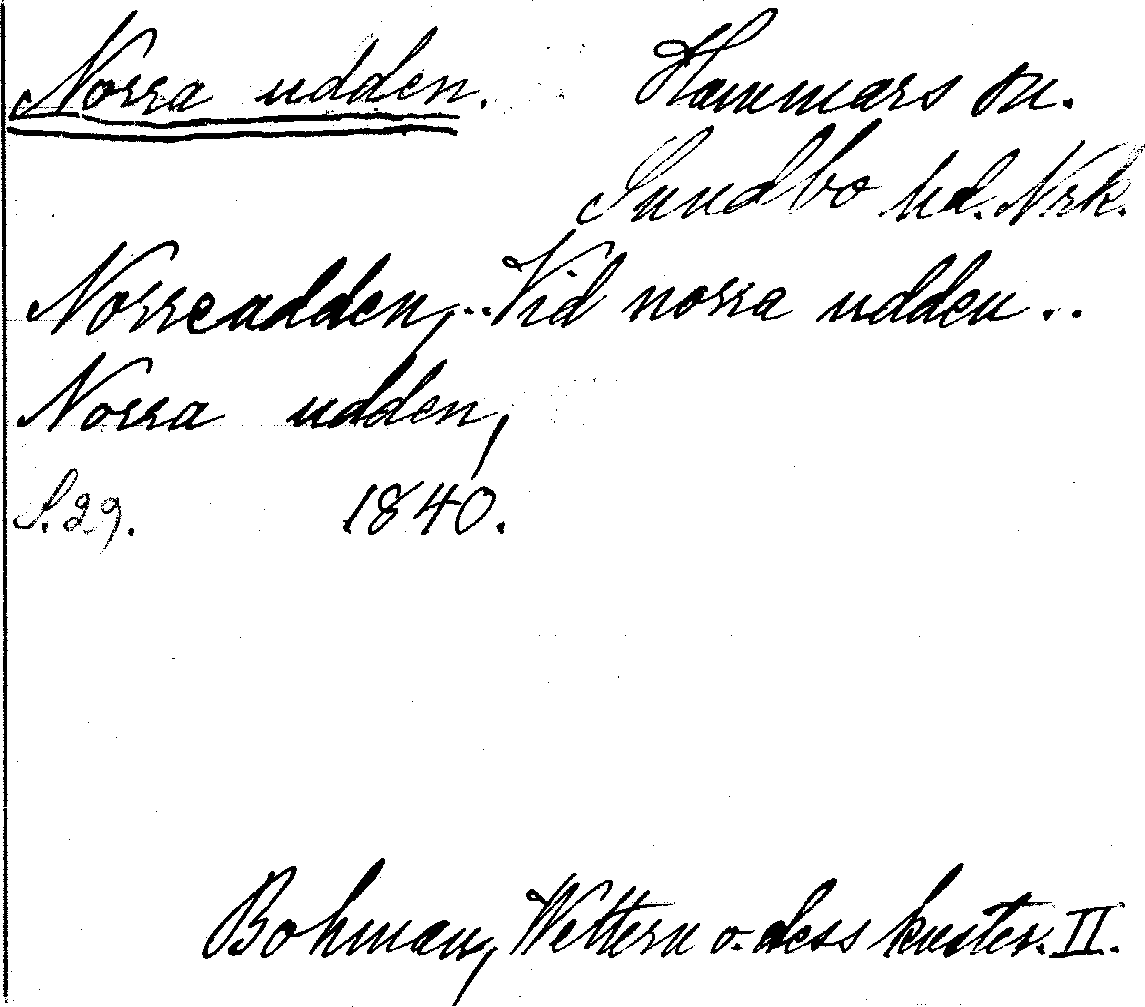 Norra udden. Hammars sn.
Sundbo hd. Nrk.
Norreudden, .. Vid norra udden ..
Norra udden,
S. 29. 1840.
Bohman, Wettern o. dess kuster. II.